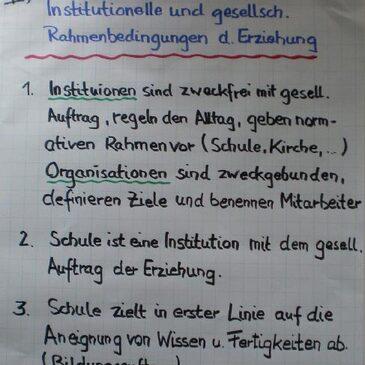 Institutionelle und gesellsch.
Rahmenbedingungen d. Erziehung
1. Instituionen sind zweckfrei mit gesell.
Auftrag, regeln den Alltag, geben norm-
ativen Rahmen vor (Schule, Kirche, ...)
Organisationen sind zweckgebunden,
definieren Ziele und benennen Mitarbeiter
2. Schule ist eine Institution mit dem gesell.
Auftrag der Erziehung.
3. Schule zielt in erster Linie auf die
Aneignung von Wissen u. Fertigkeiten ab.